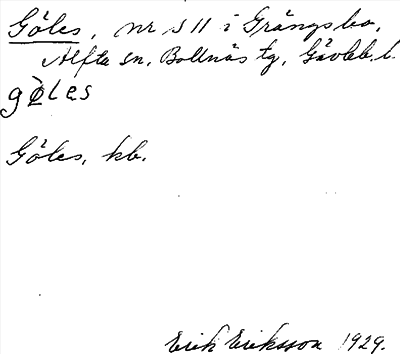 Göles, nr 511 i Grängsbo,
Alfta sn, Bollnäs tg, Gävleb. l.
göles
Göles, kb.
Erik Eriksson 1929.